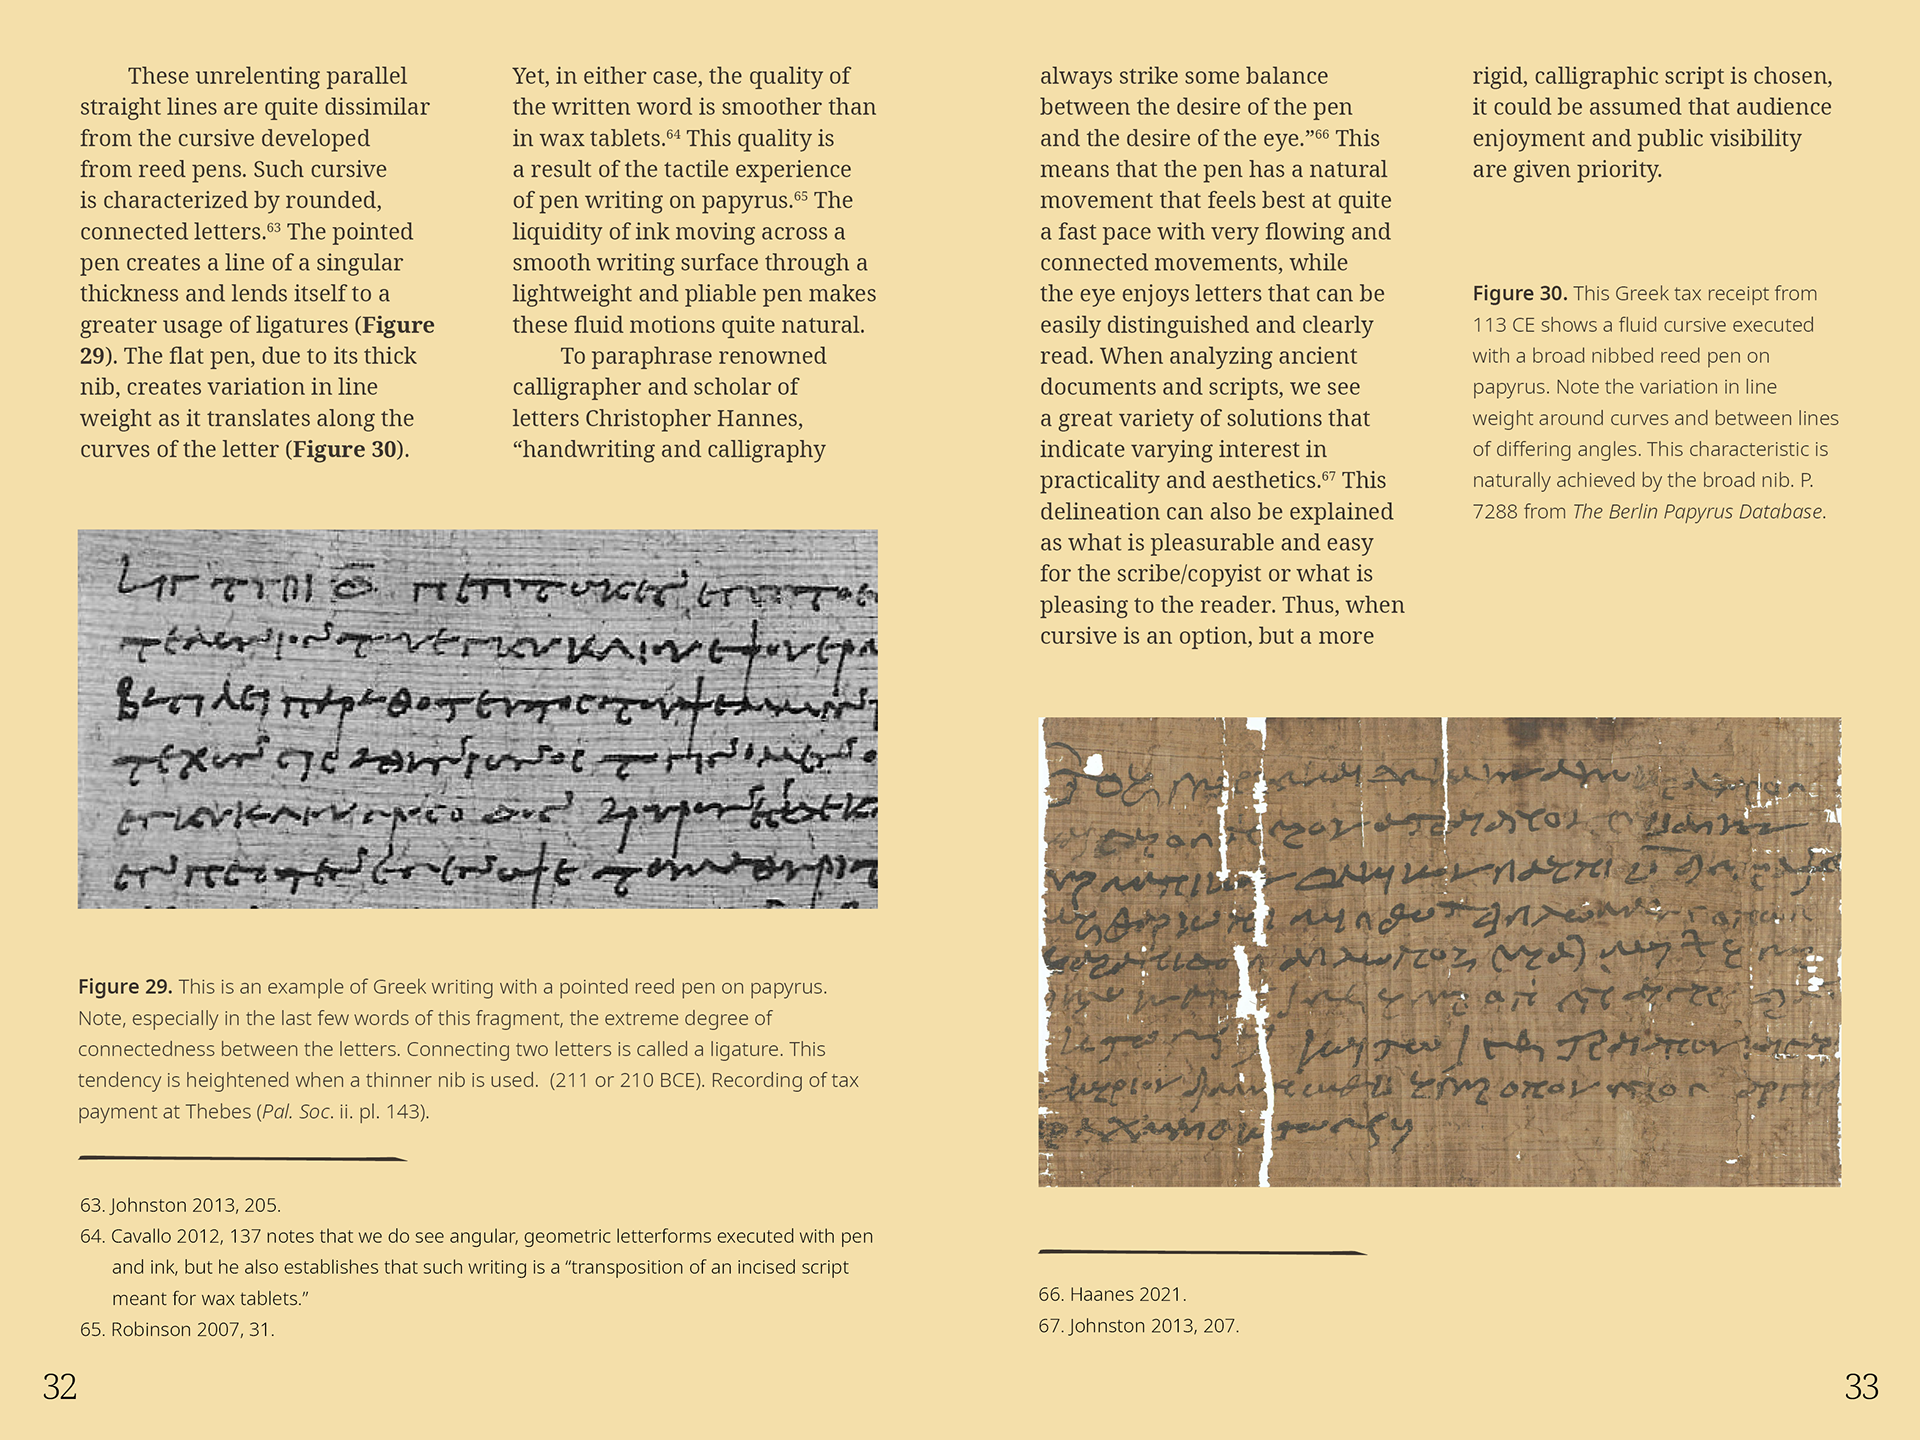 These unrelenting parallel
straight lines are quite dissimilar
from the cursive developed
from reed pens. Such cursive
is characterized by rounded,
connected letters.63 The pointed
pen creates a line of a singular
thickness and lends itself to a
greater usage of ligatures (Figure
29). The flat pen, due to its thick
nib, creates variation in line
weight as it translates along the
curves of the letter (Figure 30).
Yet, in either case, the quality of
the written word is smoother than
in wax tablets.64 This quality is
a result of the tactile experience
of pen writing on papyrus.65 The
liquidity of ink moving across a
smooth writing surface through a
lightweight and pliable pen makes
these fluid motions quite natural.
To paraphrase renowned
calligrapher and scholar of
letters Christopher Hannes,
“handwriting and calligraphy
Figure 29. This is an example of Greek writing with a pointed reed pen on papyrus.
Note, especially in the last few words of this fragment, the extreme degree of
connectedness between the letters. Connecting two letters is called a ligature. This
tendency is heightened when a thinner nib is used.  (211 or 210 BCE). Recording of tax
payment at Thebes (Pal. Soc. ii. pl. 143).
63. Johnston 2013, 205.
64. Cavallo 2012, 137 notes that we do see angular, geometric letterforms executed with pen
and ink, but he also establishes that such writing is a “transposition of an incised script
meant for wax tablets.”
65. Robinson 2007, 31.
32
always strike some balance
between the desire of the pen
and the desire of the eye.”66 This
means that the pen has a natural
movement that feels best at quite
a fast pace with very flowing and
connected movements, while
the eye enjoys letters that can be
easily distinguished and clearly
read. When analyzing ancient
documents and scripts, we see
a great variety of solutions that
indicate varying interest in
practicality and aesthetics.67 This
delineation can also be explained
as what is pleasurable and easy
for the scribe/copyist or what is
pleasing to the reader. Thus, when
cursive is an option, but a more
rigid, calligraphic script is chosen,
it could be assumed that audience
enjoyment and public visibility
are given priority.
Figure 30. This Greek tax receipt from
113 CE shows a fluid cursive executed
with a broad nibbed reed pen on
papyrus. Note the variation in line
weight around curves and between lines
of differing angles. This characteristic is
naturally achieved by the broad nib. P.
7288 from The Berlin Papyrus Database.
66. Haanes 2021.
67. Johnston 2013, 207.
33